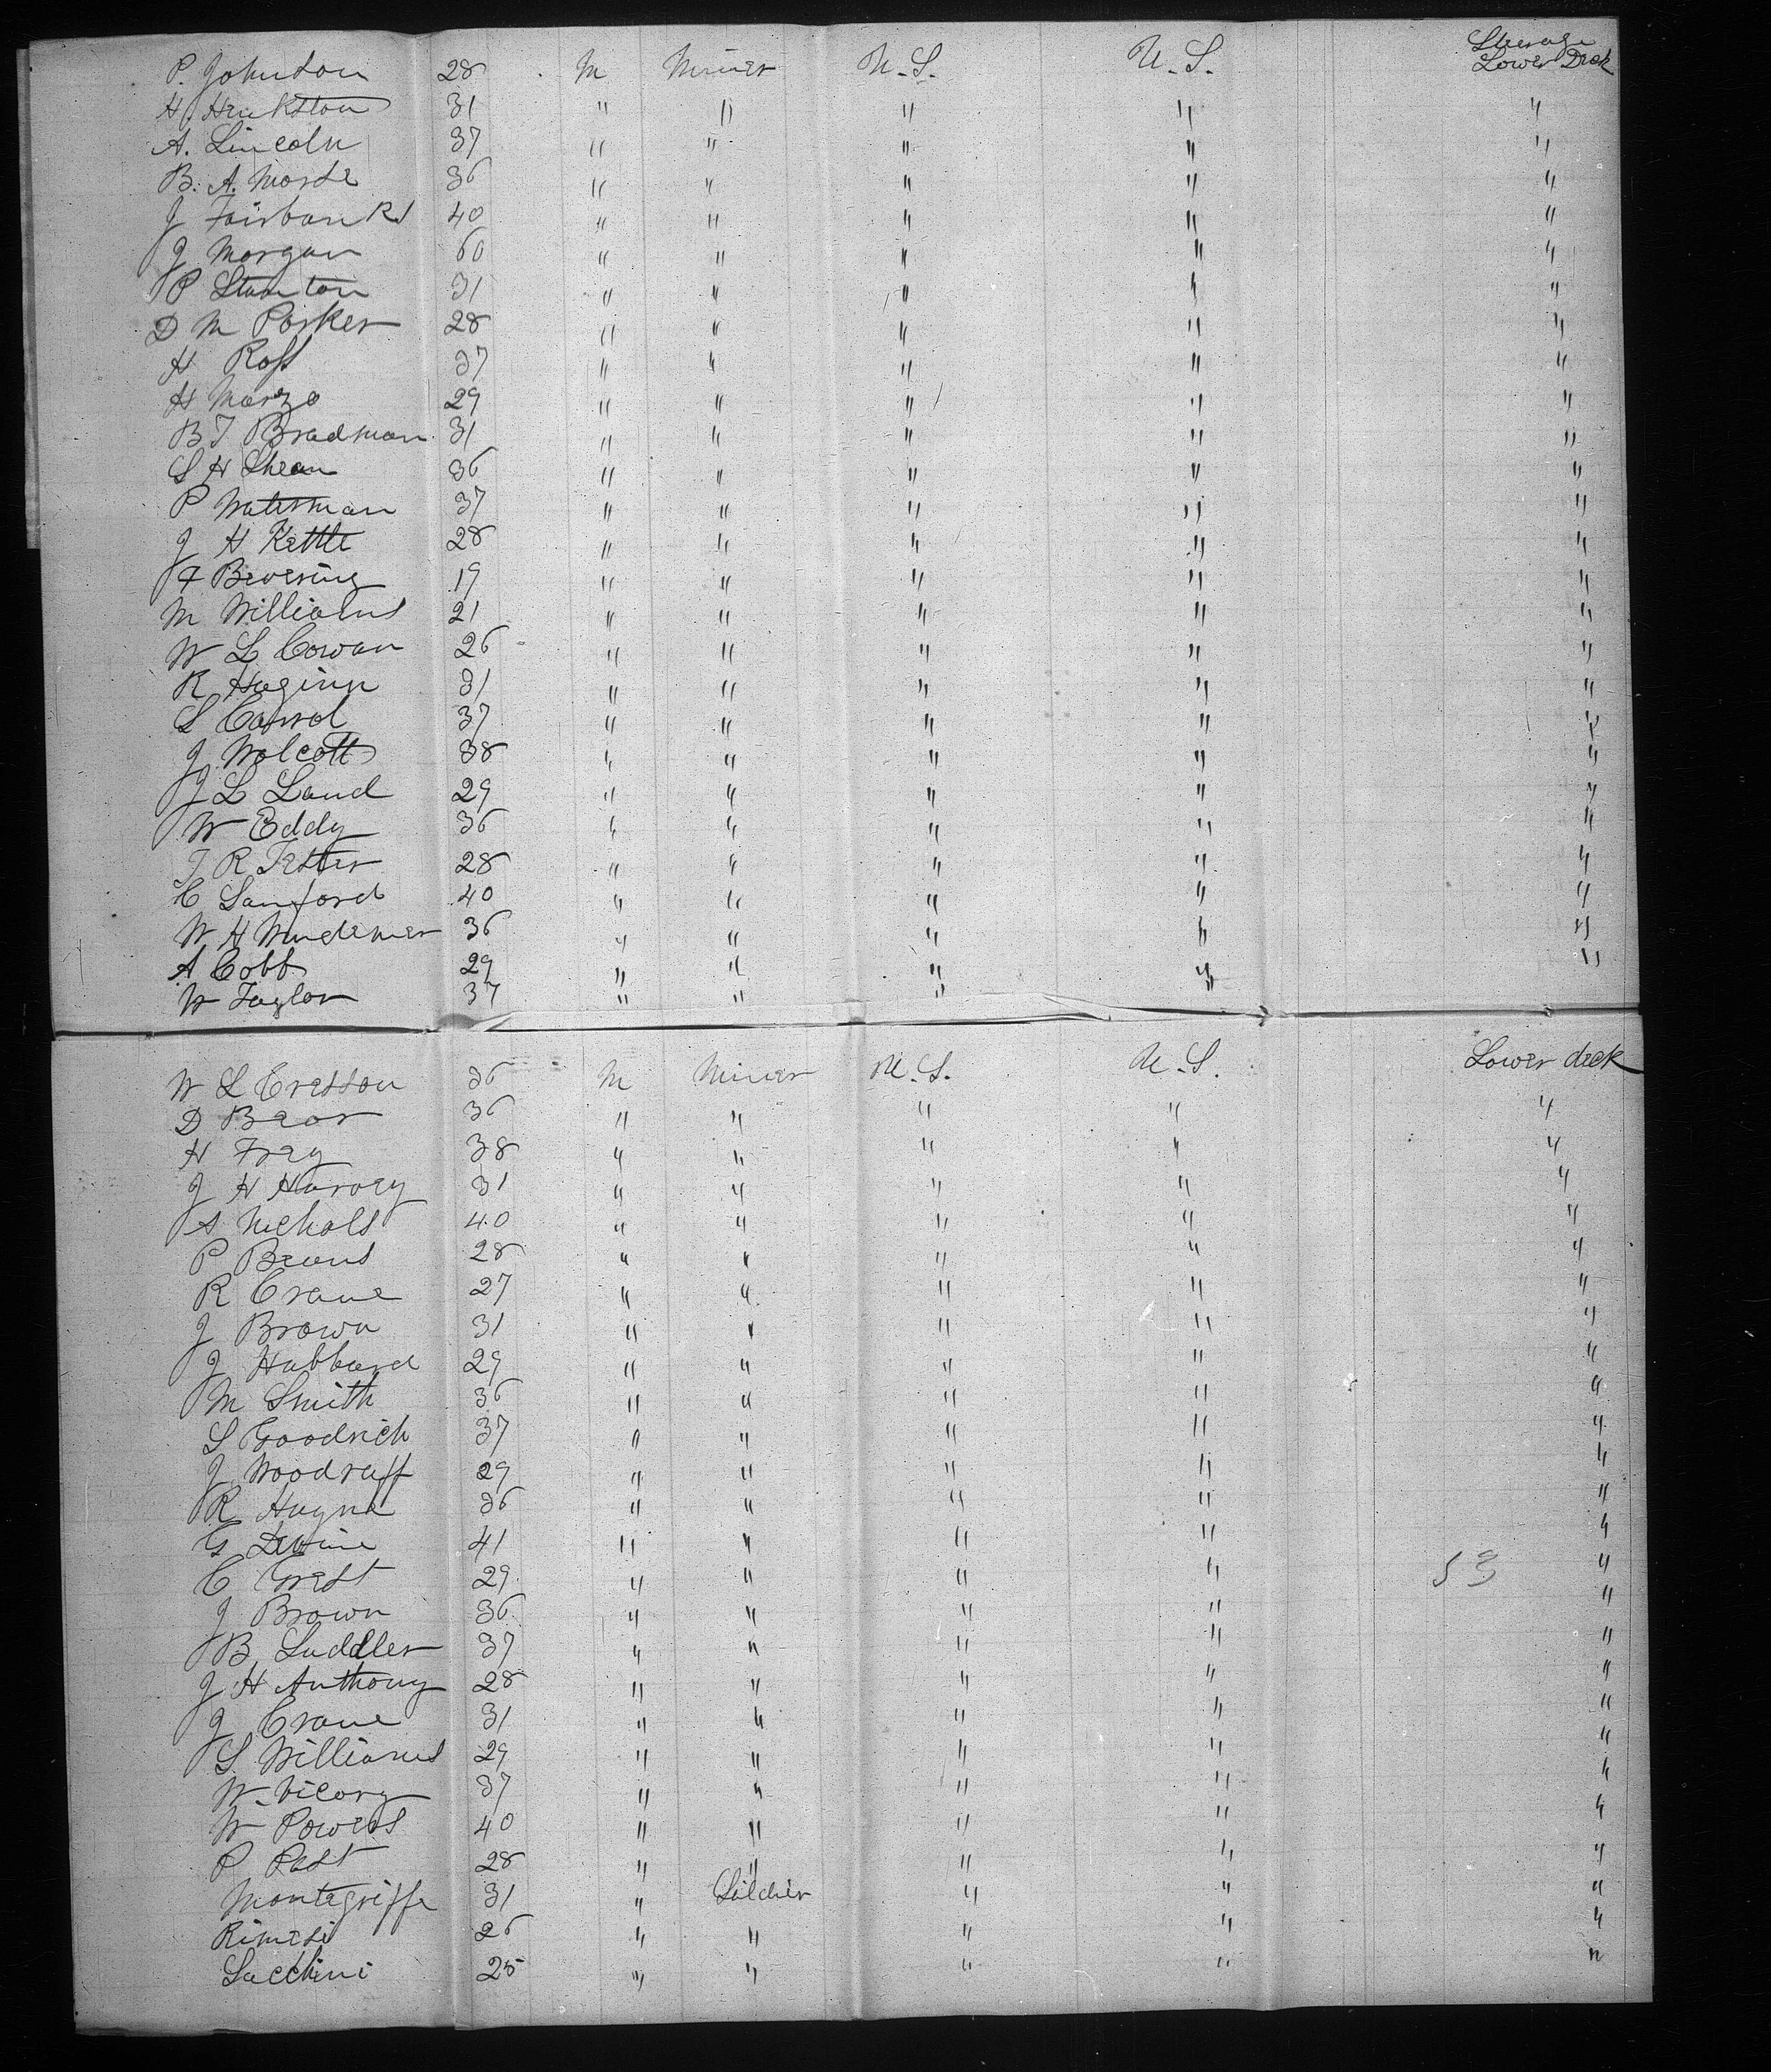 P. Johnston 28 M Miner U.S. U.S. Steerage Lower Deck
H. Henkston 31 " " " " "
A. Lincoln 37 " " " " "
B. A. Morse 36 " " " " "
J Fairbanks 40 " " " " "
J Morgan 60 " " " " "
P Stanton 31 " " " " "
D M Parker 28 " " " " "
H Ross 37 " " " " "
H Marzo 29 " " " " "
B T Bradman 31 " " " " "
S H Shean 36 " " " " "
P Waterman 37 " " " " "
J H Kettle 28 " " " " "
F Bevering 19 " " " " "
M Williams 21 " " " " "
W L Cowan 26 " " " " "
R Haginn 31 " " " " "
L Carrol 37 " " " " "
J Wolcott 38 " " " " "
J L Land 29 " " " " "
W Eddy 36 " " " " "
J R Tester 28 " " " " "
C Sanford 40 " " " " "
W H 36 " " " " "
A Cobb 29 " " " " "
W Taylor 37 " " " " "
W L Cresson 36 M Miner U.S. U.S. Lower deck
D Bear 36 " " " " "
H Frey 38 " " " " "
J H Harvey 31 " " " " "
A Nichols 40 " " " " "
P Beans 28 " " " " "
R Crane 27 " " " " "
J Brown 31 " " " " "
J Hubbard 29 " " " " "
M Smith 36 " " " " "
S Goodrich 37 " " " " "
J Woodruff 29 " " " " "
R Hayna 36 " " " " "
G 41 " " " " "
C Crest 29 " " " " 53 "
J Brown 36 " " " " "
B Luddler 37 " " " " "
J H Anthony 28 " " " " "
J Crane 31 " " " " "
S Williams 29 " " " " "
W. Vicory 37 " " " " "
W Powers 40 " " " " "
P Post 28 " " " " "
Montegriffe 31 " Soldier " " "
Rimesi 26 " " " " "
Lucchini 25 " " " " "